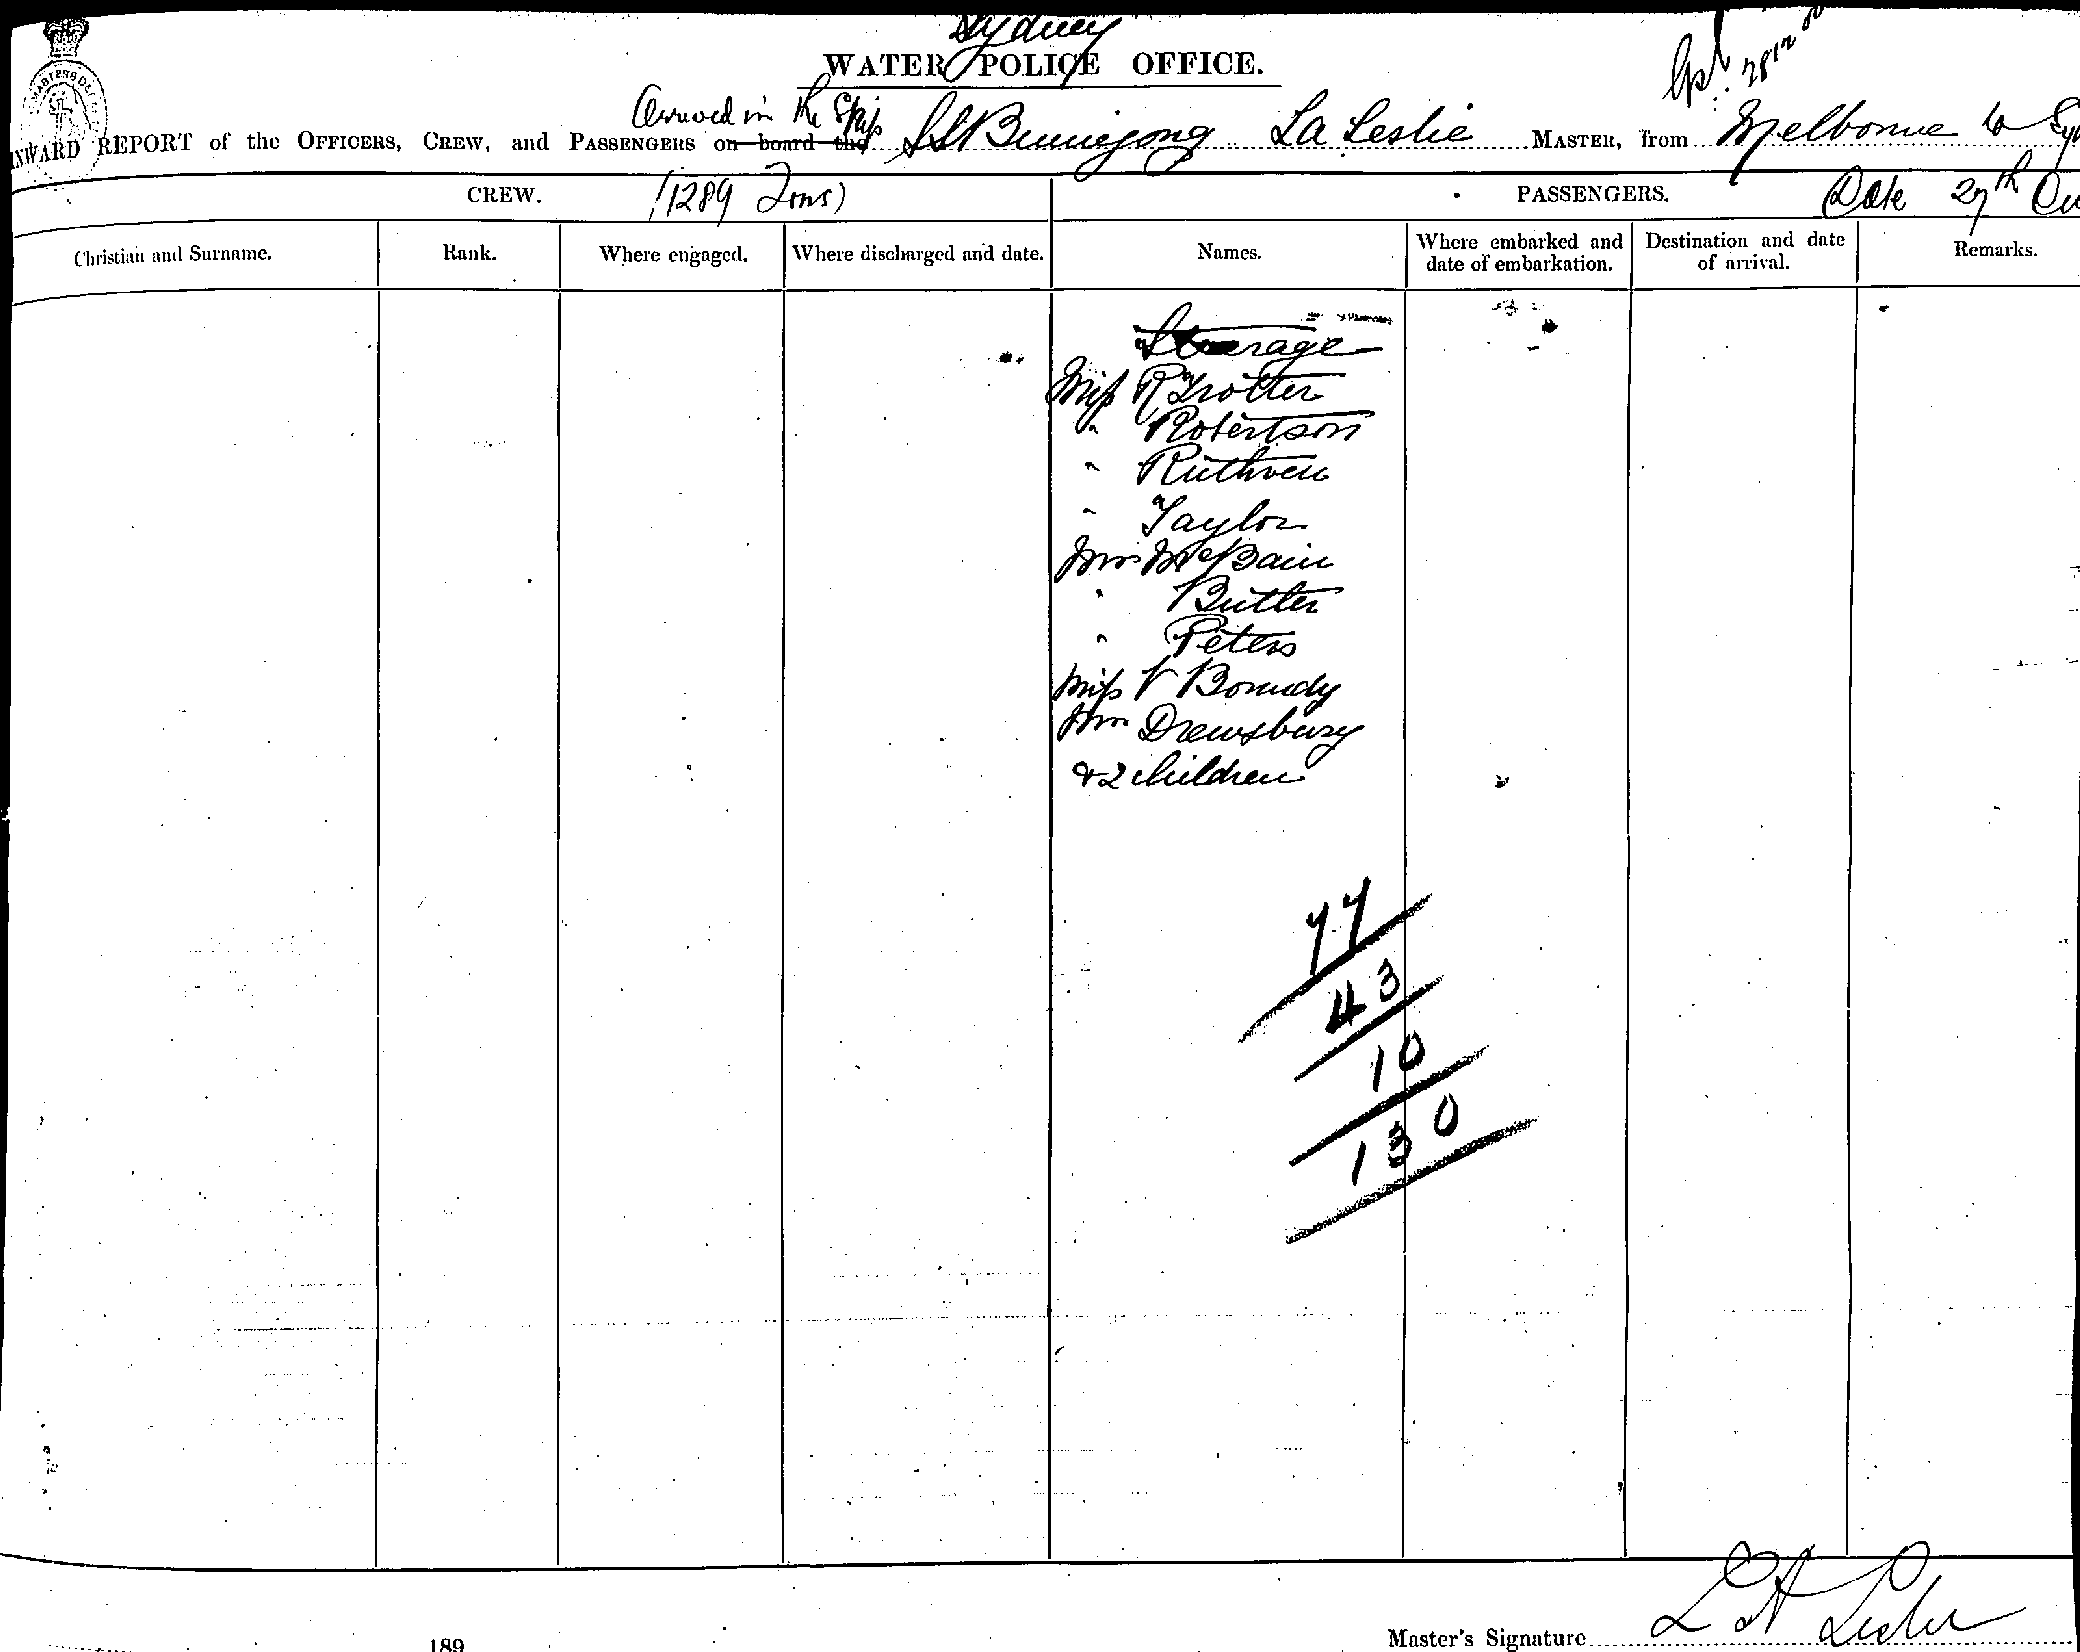 Sydney
WATER POLICE OFFICE.
Arrived in the Ship
INWARD REPORT of the OFFICERS, CREW, and PASSENGERS on board the SS Buninyong La Leslie MASTER, from Melbourne to Syd
CREW. (1289 Tons) PASSENGERS. Date 27th
Christian and Surname. Rank. Where engaged. Where discharged and date. Names. Where embarked and date of embarkation. Destination and date of arrival. Remarks.
Steerage
Miss R Trotter
" Robertson
" Ruthven
" Taylor
Mrs McBain
" Butter
" Peters
Miss V
Mrs Drewsbury
& 2 children
77
43
10
130
189
Master's Signature L A Leslie